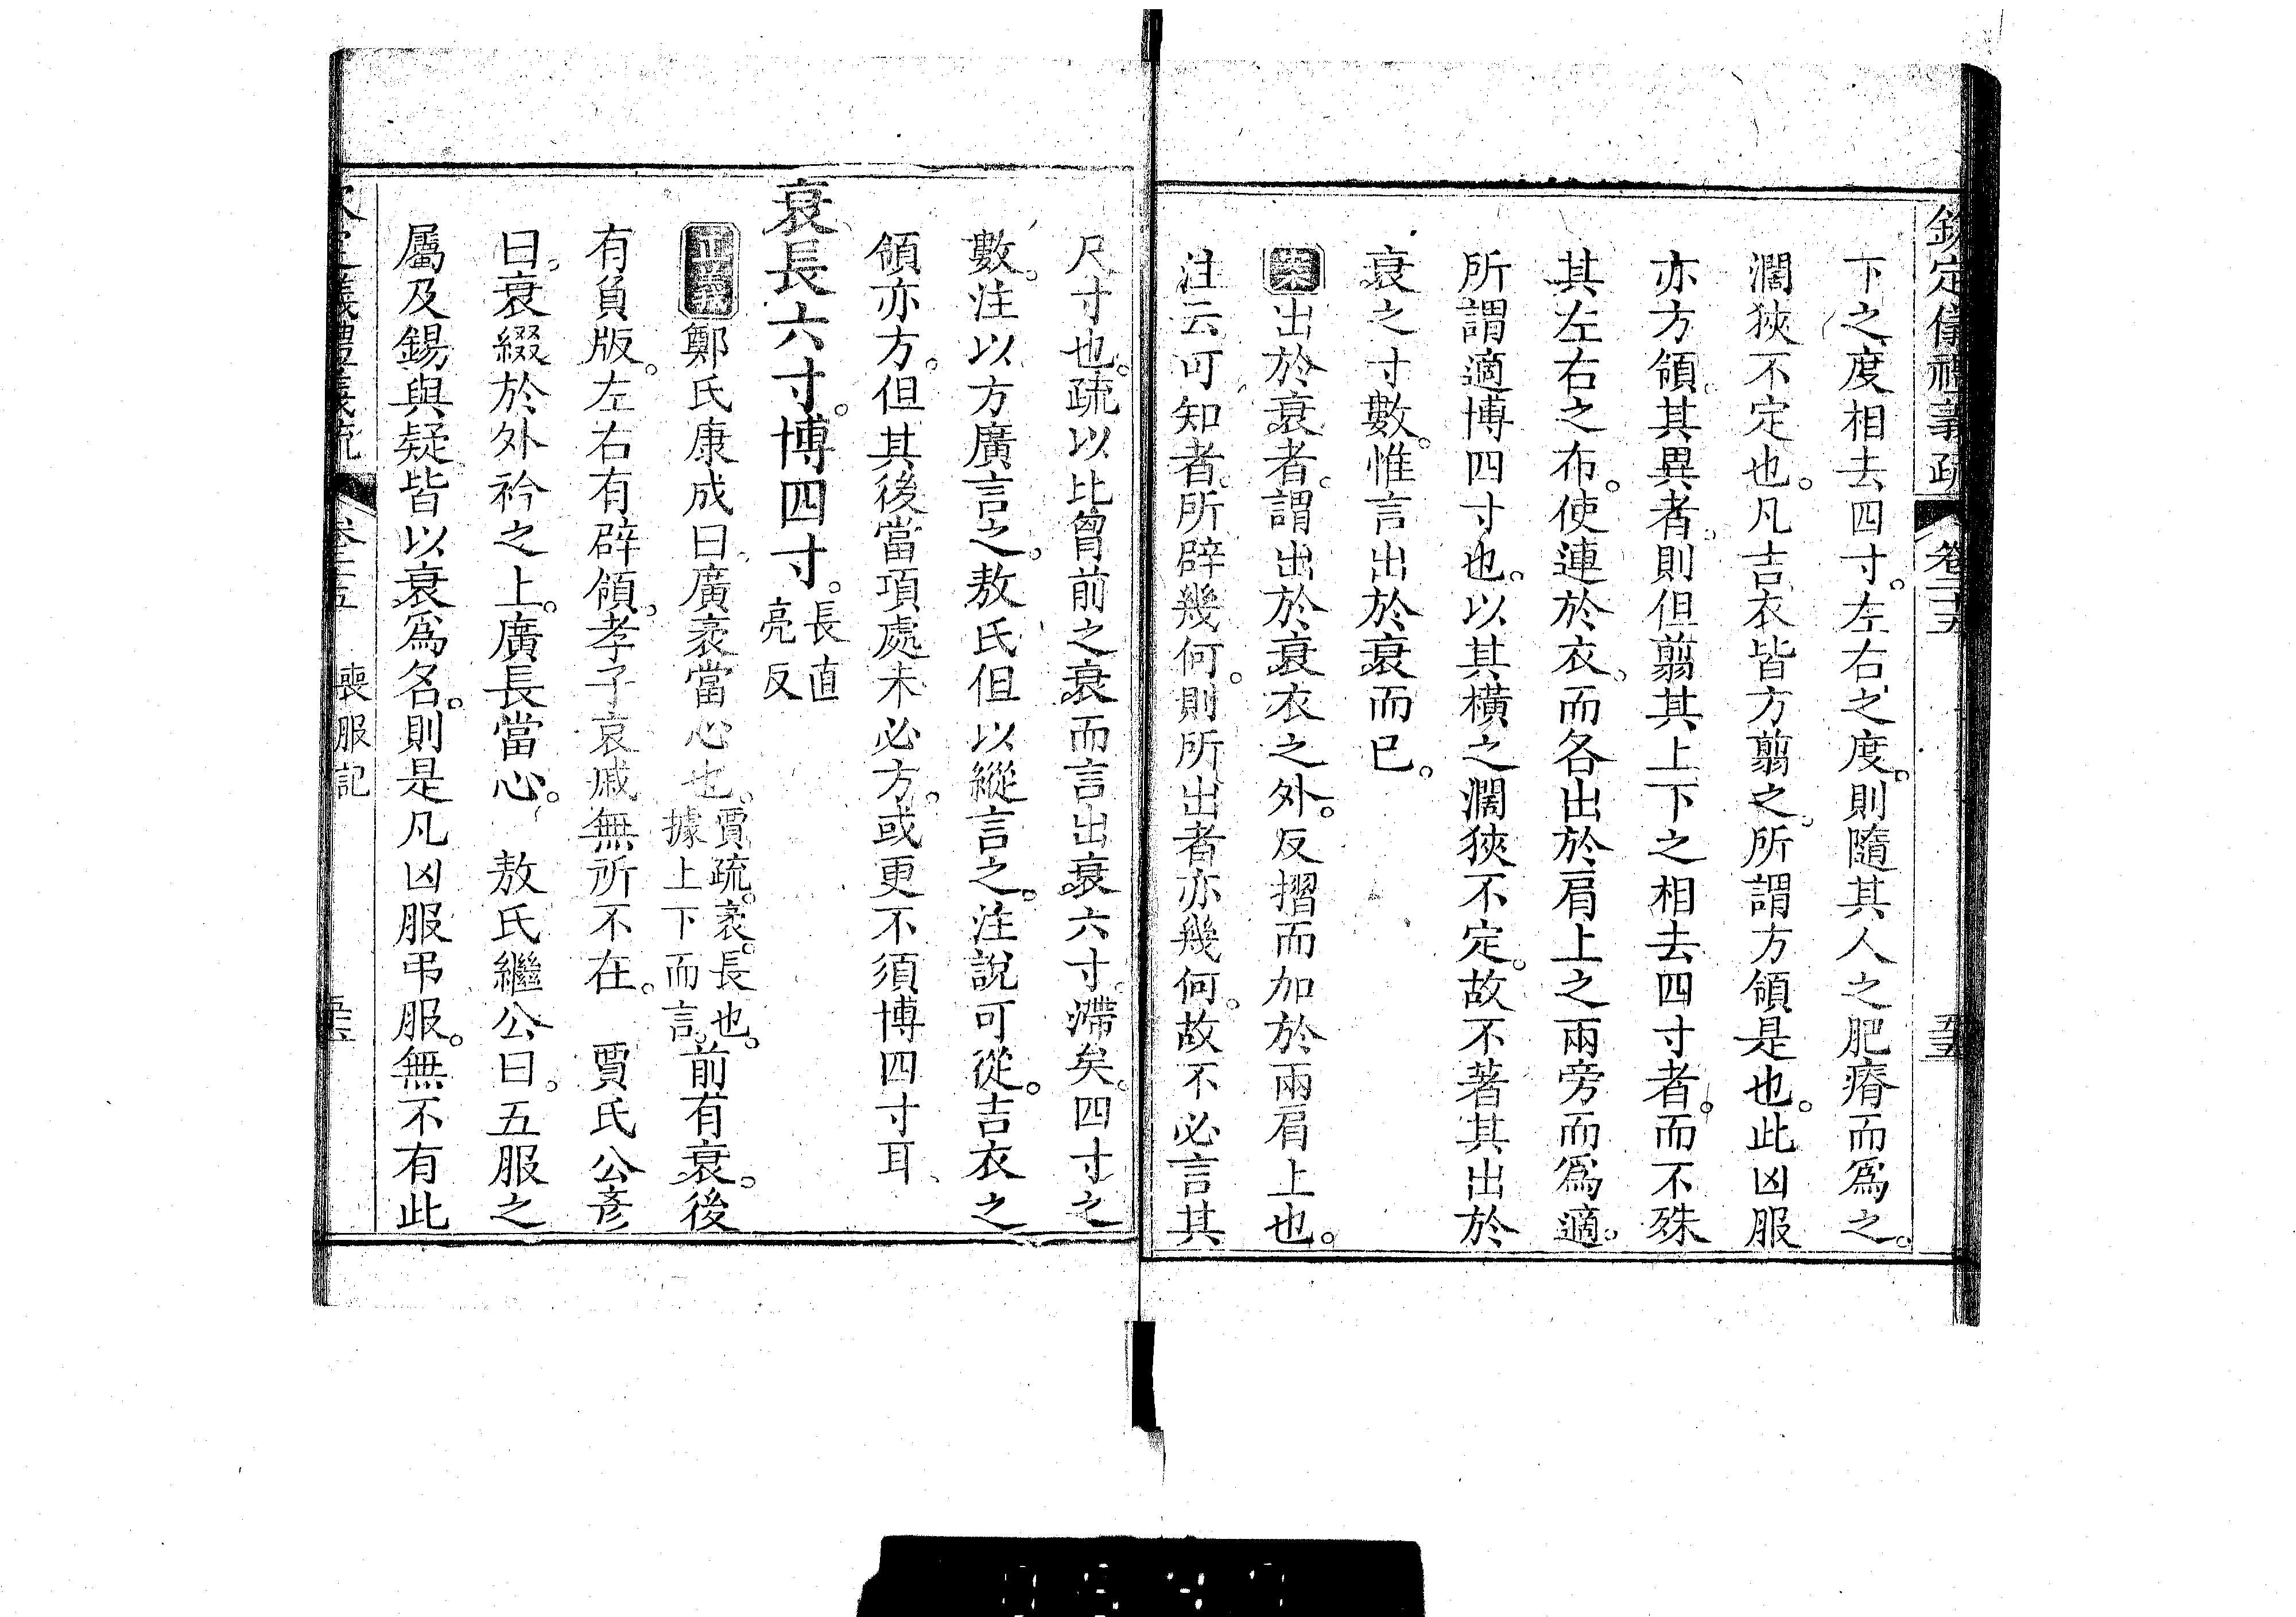 欽定儀禮義疏 卷二十五 五十五
下之度相去四寸。左右之度。則隨其人之肥瘠而爲之。
濶狹不定也。凡吉衣皆方翦之。所謂方領是也。此凶服
亦方領。其異者。則但翦其上下之相去四寸者。而不殊
其左右之布。使連於衣。而各出於肩上之兩旁而爲適。
所謂適博四寸也。以其橫之濶狹不定。故不著其出於
衰之寸數。惟言出於衰而已。
案出於衰者。謂出於衰衣之外。反摺而加於兩肩上也。
注云可知者。所辟幾何。則所出者亦幾何。故不必言其
尺寸也。疏以比胷前之衰。而言出衰六寸。滯矣。四寸之
數。注以方廣言之。敖氏但以縱言之。注說可從。吉衣之
領亦方。但其後當項處未必方。或更不須博四寸耳
衰長六寸。博四寸。長直亮反
正義鄭氏康成曰。廣袤當心也。賈疏。袤。長也。據上下而言。前有衰。後
有負版。左右有辟領。孝子哀戚無所不在。 賈氏公彦
曰。衰綴於外衿之上。廣長當心。 敖氏繼公曰。五服之
屬及錫與疑。皆以衰爲名。則是凡凶服弔服。無不有此
喪服記